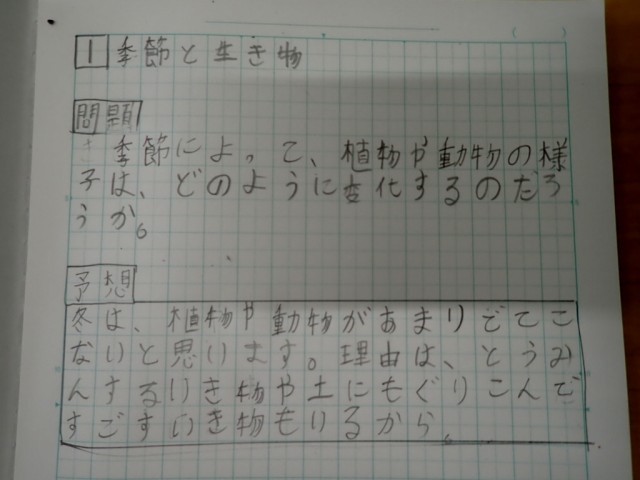 1 季節と生き物
問題
季節によって、植物や動物の様
子は、どのように変化するのだろ
うか。
予想
冬は、植物や動物があまりでてこ
ないと思います。理由は、とうみ
んするいき物や土にもぐりこんで
すごすいき物もいるから。